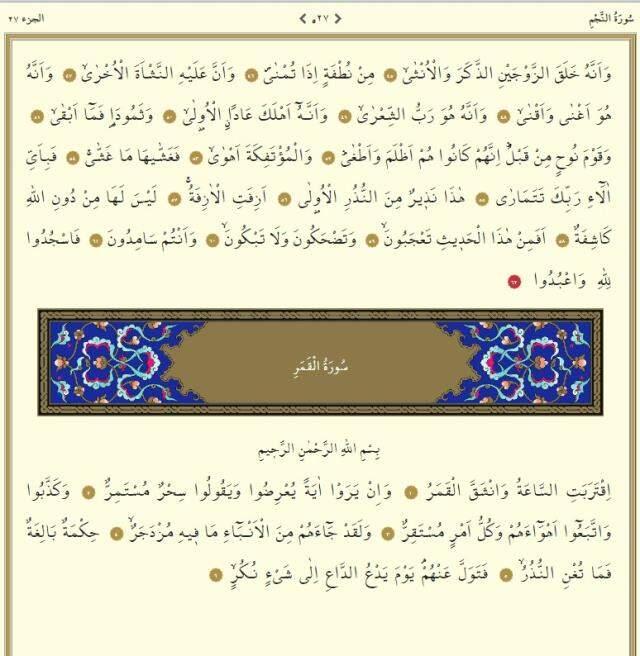 سُورَةُ النَّجْمِ ‹ ٥٢٧ › الجزء ٢٧
وَاَنَّهُ خَلَقَ الزَّوْجَيْنِ الذَّكَرَ وَالْاُنْثٰىۙ ﴿٤٥﴾ مِنْ نُطْفَةٍ اِذَا تُمْنٰىۖ ﴿٤٦﴾ وَاَنَّ عَلَيْهِ النَّشْاَةَ الْاُخْرٰىۙ ﴿٤٧﴾ وَاَنَّهُ
هُوَ اَغْنٰى وَاَقْنٰىۙ ﴿٤٨﴾ وَاَنَّهُ هُوَ رَبُّ الشِّعْرٰىۙ ﴿٤٩﴾ وَاَنَّهُٓ اَهْلَكَ عَادًاۨ الْاُو۫لٰىۙ ﴿٥٠﴾ وَثَمُودَا۬ فَمَٓا اَبْقٰىۙ ﴿٥١﴾
وَقَوْمَ نُوحٍ مِنْ قَبْلُۜ اِنَّهُمْ كَانُوا هُمْ اَظْلَمَ وَاَطْغٰىۜ ﴿٥٢﴾ وَالْمُؤْتَفِكَةَ اَهْوٰىۙ ﴿٥٣﴾ فَغَشّٰيهَا مَا غَشّٰىۚ ﴿٥٤﴾ فَبِاَيِّ
اٰلَٓاءِ رَبِّكَ تَتَمَارٰى ﴿٥٥﴾ هٰذَا نَذ۪يرٌ مِنَ النُّذُرِ الْاُو۫لٰى ﴿٥٦﴾ اَزِفَتِ الْاٰزِفَةُۚ ﴿٥٧﴾ لَيْسَ لَهَا مِنْ دُونِ اللّٰهِ
كَاشِفَةٌۜ ﴿٥٨﴾ اَفَمِنْ هٰذَا الْحَد۪يثِ تَعْجَبُونَۙ ﴿٥٩﴾ وَتَضْحَكُونَ وَلَا تَبْكُونَۙ ﴿٦٠﴾ وَاَنْتُمْ سَامِدُونَ ﴿٦١﴾ فَاسْجُدُوا
لِلّٰهِ وَاعْبُدُوا ﴿٦٢﴾
سُورَةُ الْقَمَرِ
بِسْمِ اللّٰهِ الرَّحْمٰنِ الرَّح۪يمِ
اِقْتَرَبَتِ السَّاعَةُ وَانْشَقَّ الْقَمَرُ ﴿١﴾ وَاِنْ يَرَوْا اٰيَةً يُعْرِضُوا وَيَقُولُوا سِحْرٌ مُسْتَمِرٌّ ﴿٢﴾ وَكَذَّبُوا
وَاتَّبَعُٓوا اَهْوَٓاءَهُمْ وَكُلُّ اَمْرٍ مُسْتَقِرٌّ ﴿٣﴾ وَلَقَدْ جَٓاءَهُمْ مِنَ الْاَنْبَٓاءِ مَا ف۪يهِ مُزْدَجَرٌۙ ﴿٤﴾ حِكْمَةٌ بَالِغَةٌ
فَمَا تُغْنِ النُّذُرُۙ ﴿٥﴾ فَتَوَلَّ عَنْهُمْۢ يَوْمَ يَدْعُ الدَّاعِ اِلٰى شَيْءٍ نُكُرٍۙ ﴿٦﴾